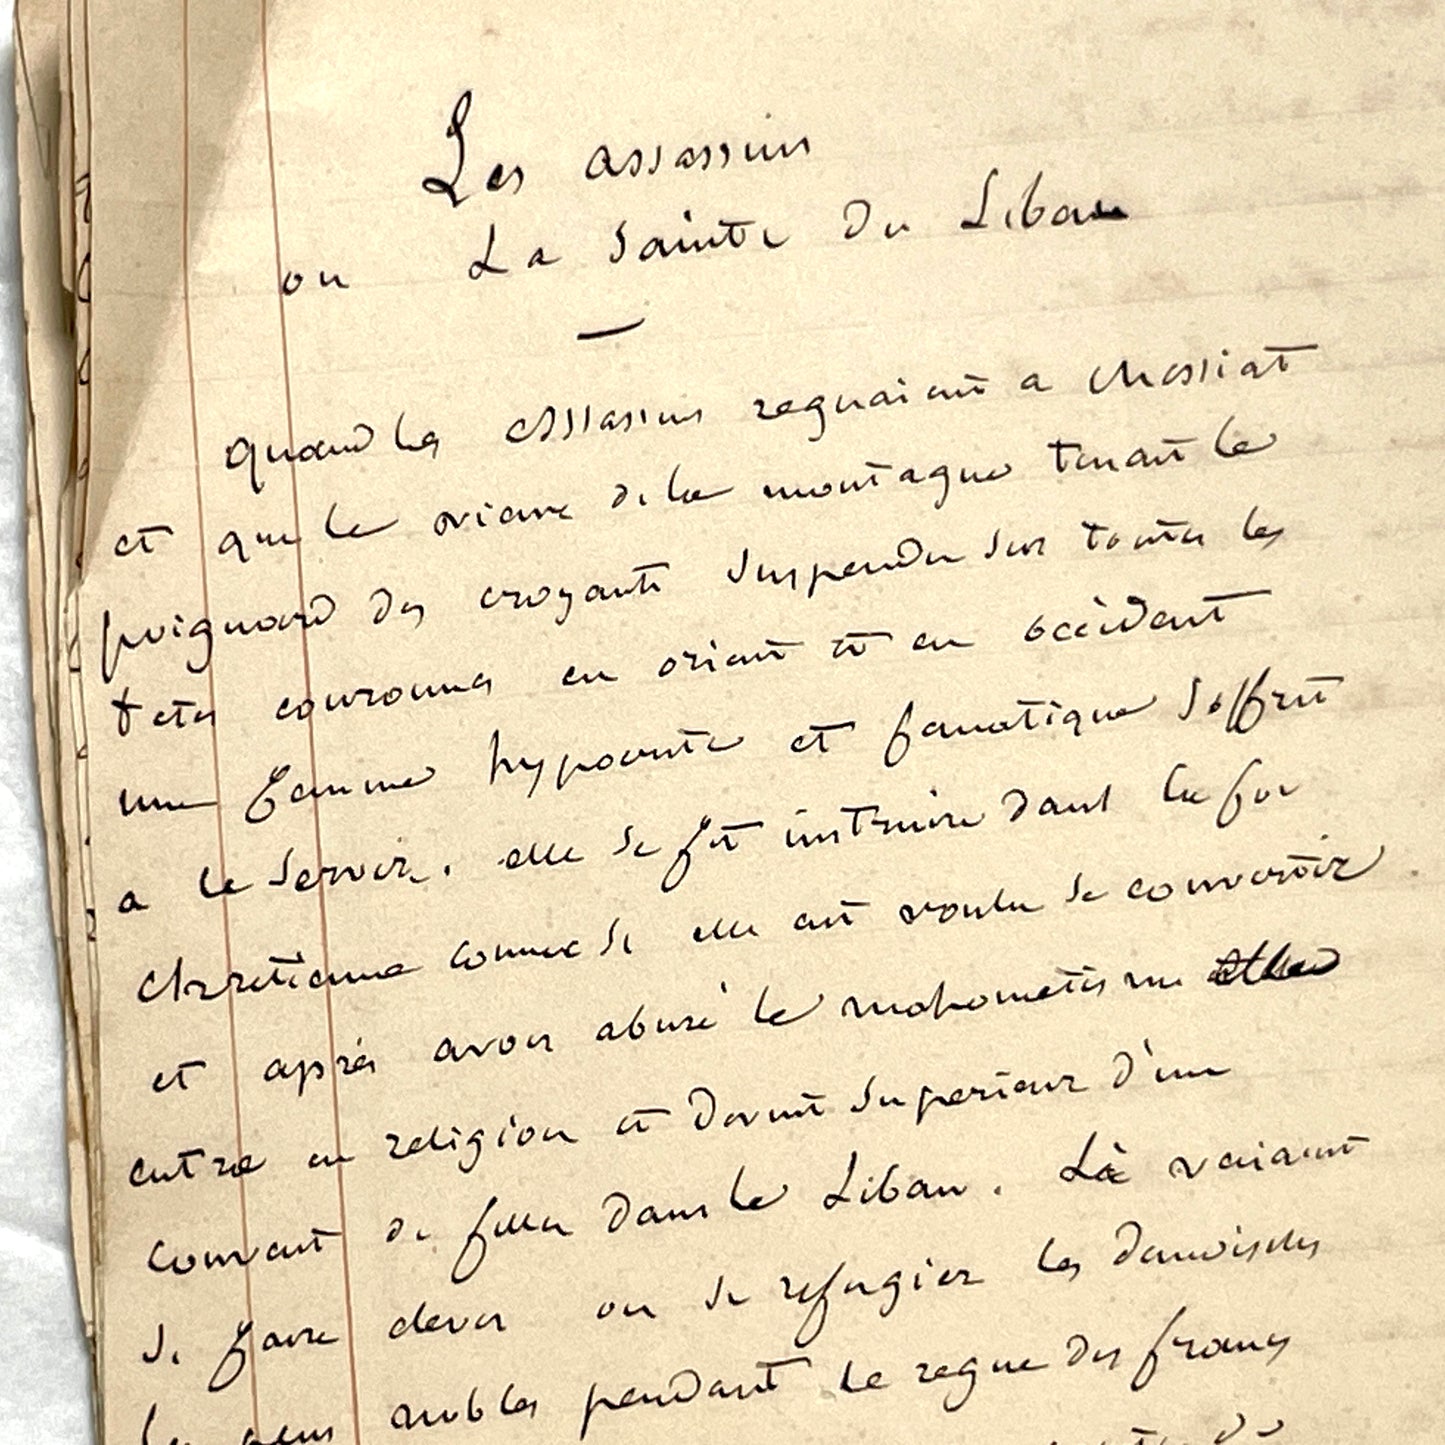 Les assassins
ou La Sainte du Liban
quand les assassins regnaient a Massiat
et que le vieux de la montagne tenait le
poignard des croyants suspendu sur toutes les
tetes couronnes en orient et en occident
une femme hypocrite et fanatique s'offrit
a le servir. elle se fit instruire dans la foi
chretienne comme si elle eut voulu se convertir
et après avoir abjuré le mahometisme
entre en religion et devint superieur d'un
couvent de filles dans le Liban. Là venaient
se faire elever ou se refugier les damoiselles
les plus nobles pendant le regne des francs